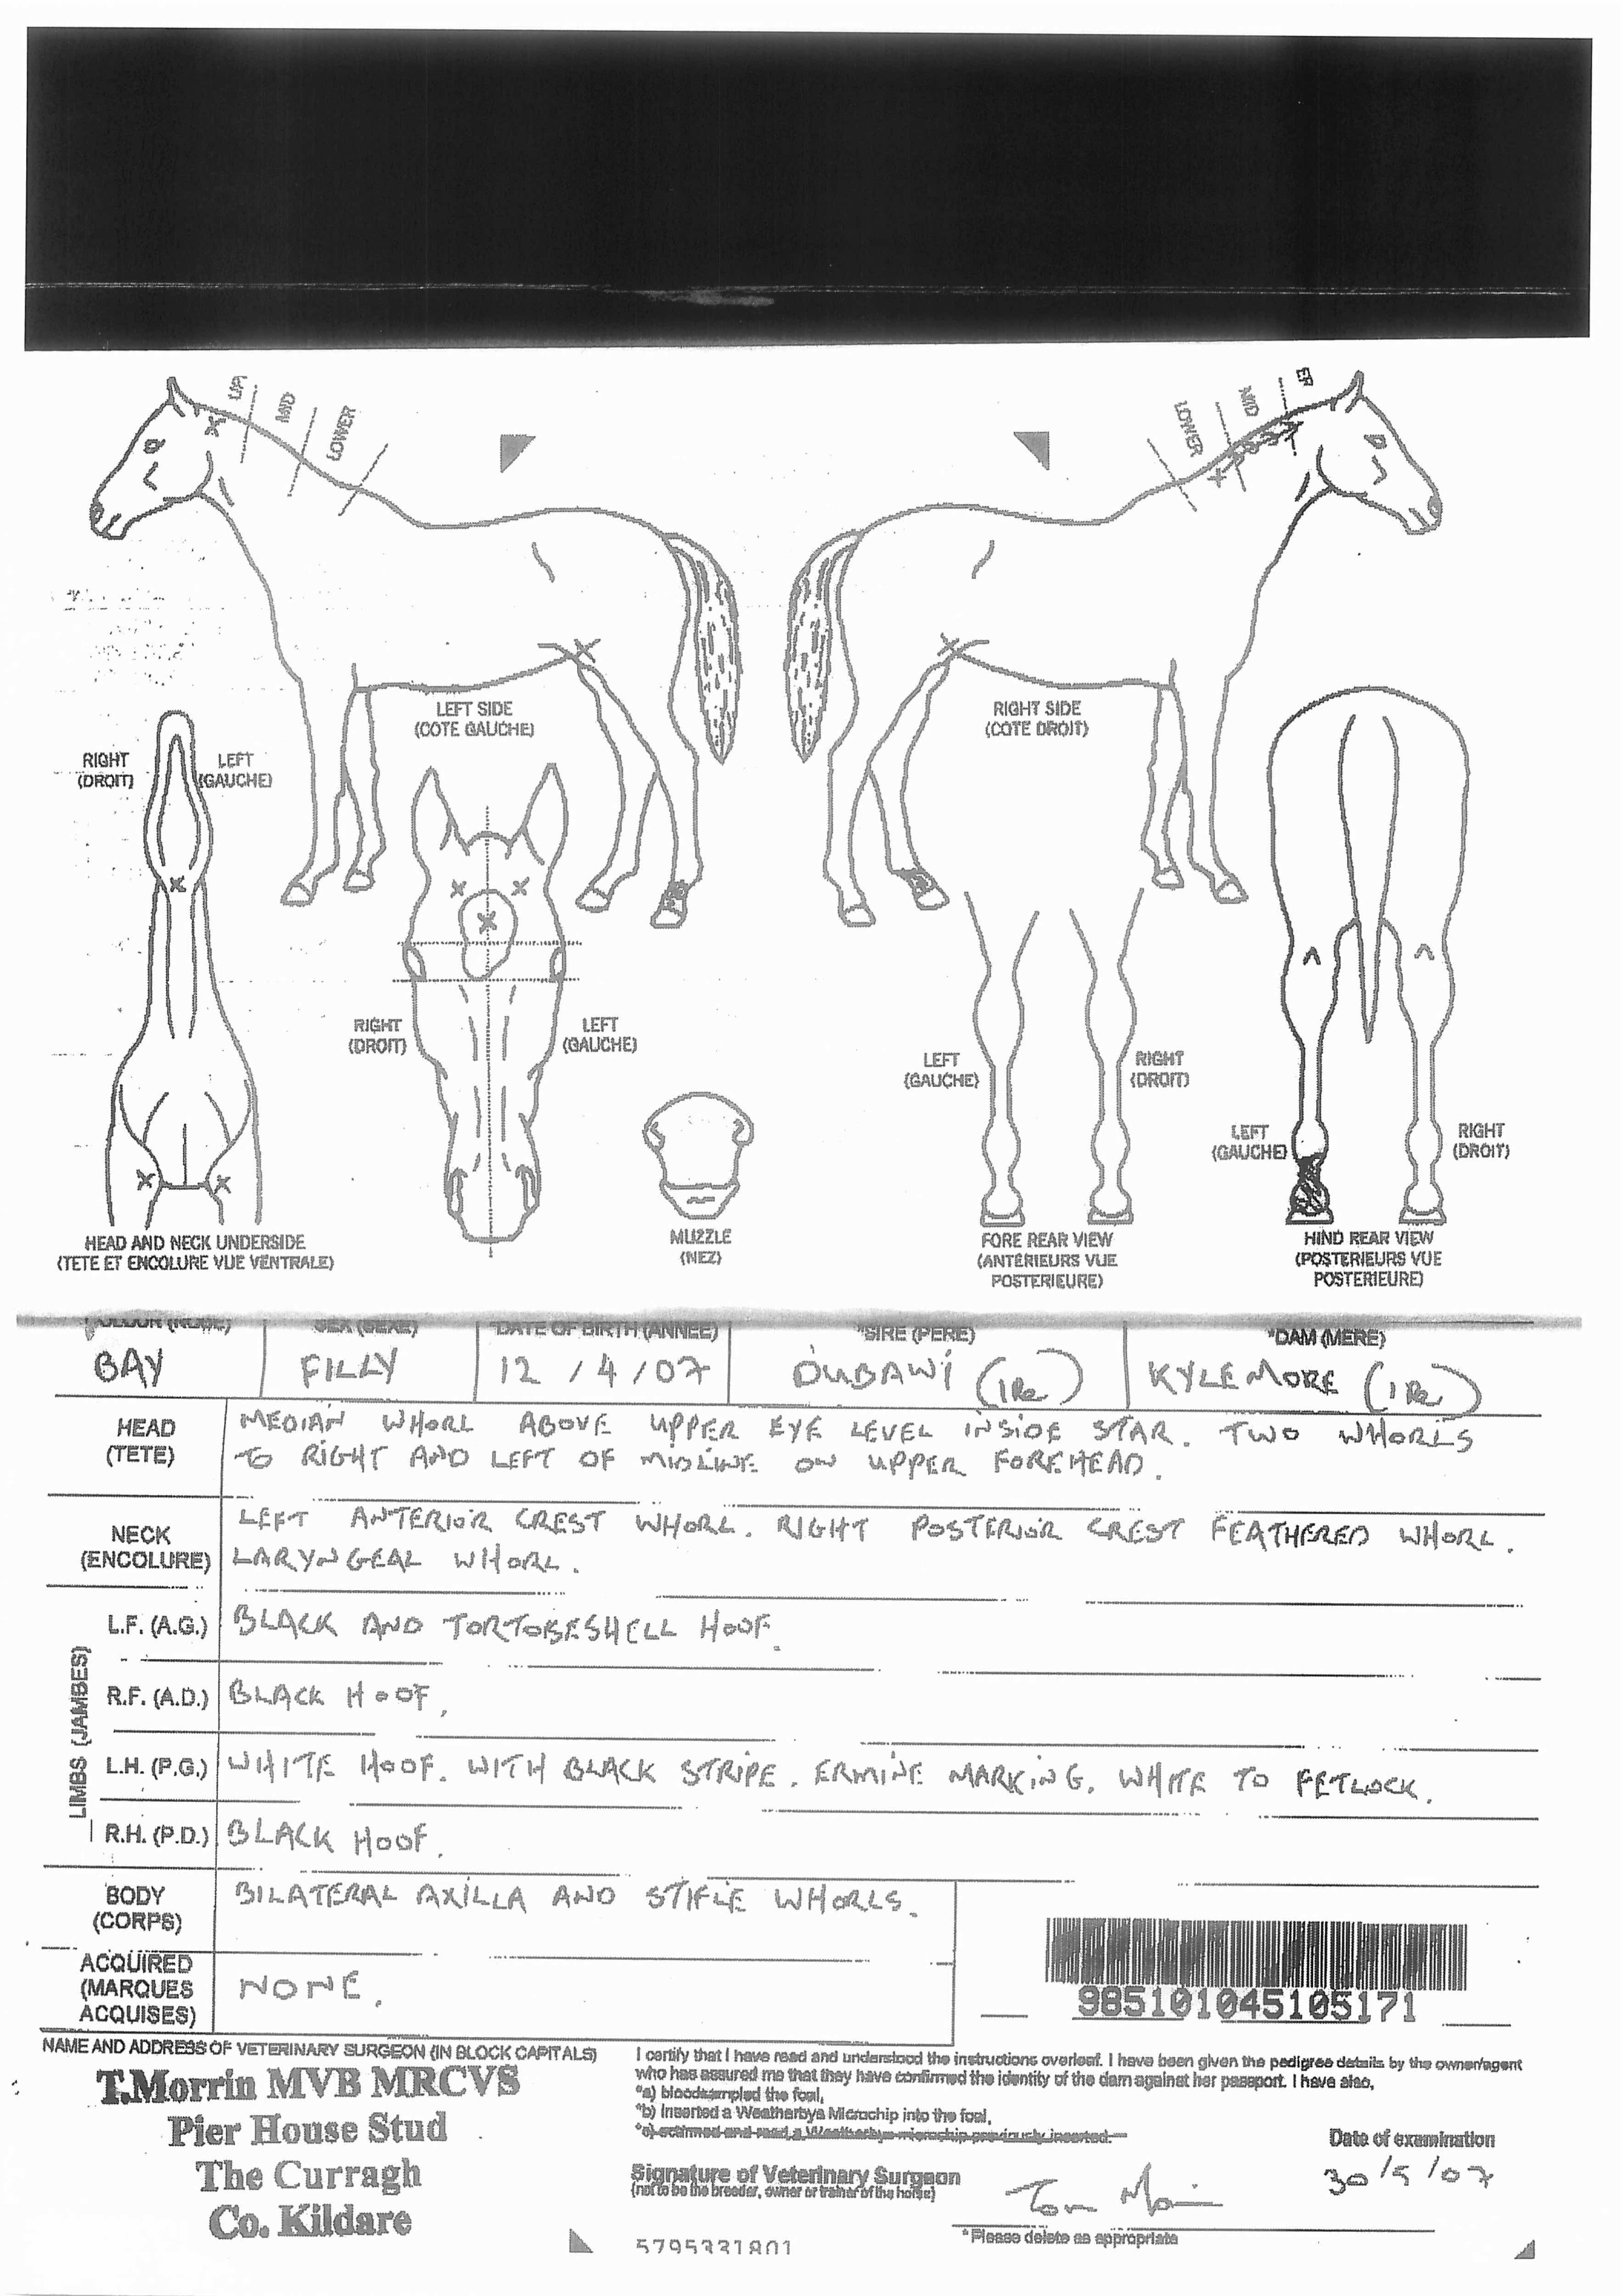 UPP
MID
LOWER
LOWER
MID
LEFT SIDE
(COTE GAUCHE)
RIGHT SIDE
(COTE DROIT)
RIGHT
(DROIT)
LEFT
(GAUCHE)
RIGHT
(DROIT)
LEFT
(GAUCHE)
LEFT
(GAUCHE)
RIGHT
(DROIT)
LEFT
(GAUCHE)
RIGHT
(DROIT)
HEAD AND NECK UNDERSIDE
(TETE ET ENCOLURE VUE VENTRALE)
MUZZLE
(NEZ)
FORE REAR VIEW
(ANTERIEURS VUE
POSTERIEURE)
HIND REAR VIEW
(POSTERIEURS VUE
POSTERIEURE)
COLOUR (ROBE) SEX (SEXE) *DATE OF BIRTH (ANNEE) *SIRE (PERE) *DAM (MERE)
BAY FILLY 12 / 4 / 07 DUBAWI (IRE) KYLEMORE (IRE)
HEAD
(TETE)
MEDIAN WHORL ABOVE UPPER EYE LEVEL INSIDE STAR. TWO WHORLS
TO RIGHT AND LEFT OF MIDLINE ON UPPER FOREHEAD.
NECK
(ENCOLURE)
LEFT ANTERIOR CREST WHORL. RIGHT POSTERIOR CREST FEATHERED WHORL.
LARYNGEAL WHORL.
LIMBS (JAMBES)
L.F. (A.G.) BLACK AND TORTOISESHELL HOOF.
R.F. (A.D.) BLACK HOOF.
L.H. (P.G.) WHITE HOOF. WITH BLACK STRIPE. ERMINE MARKING. WHITE TO FETLOCK.
R.H. (P.D.) BLACK HOOF.
BODY
(CORPS)
BILATERAL AXILLA AND STIFLE WHORLS.
ACQUIRED
(MARQUES
ACQUISES)
NONE.
985101045105171
NAME AND ADDRESS OF VETERINARY SURGEON (IN BLOCK CAPITALS)
T.Morrin MVB MRCVS
Pier House Stud
The Curragh
Co. Kildare
I certify that I have read and understood the instructions overleaf. I have been given the pedigree details by the owner/agent
who has assured me that they have confirmed the identity of the dam against her passport. I have also,
*a) bloodsampled the foal,
*b) Inserted a Weatherbys Microchip into the foal,
*c) scanned and read, a Weatherbys microchip previously inserted.
Date of examination
30/5/07
Signature of Veterinary Surgeon
(not to be the breeder, owner or trainer of the horse)
* Please delete as appropriate
5795331801